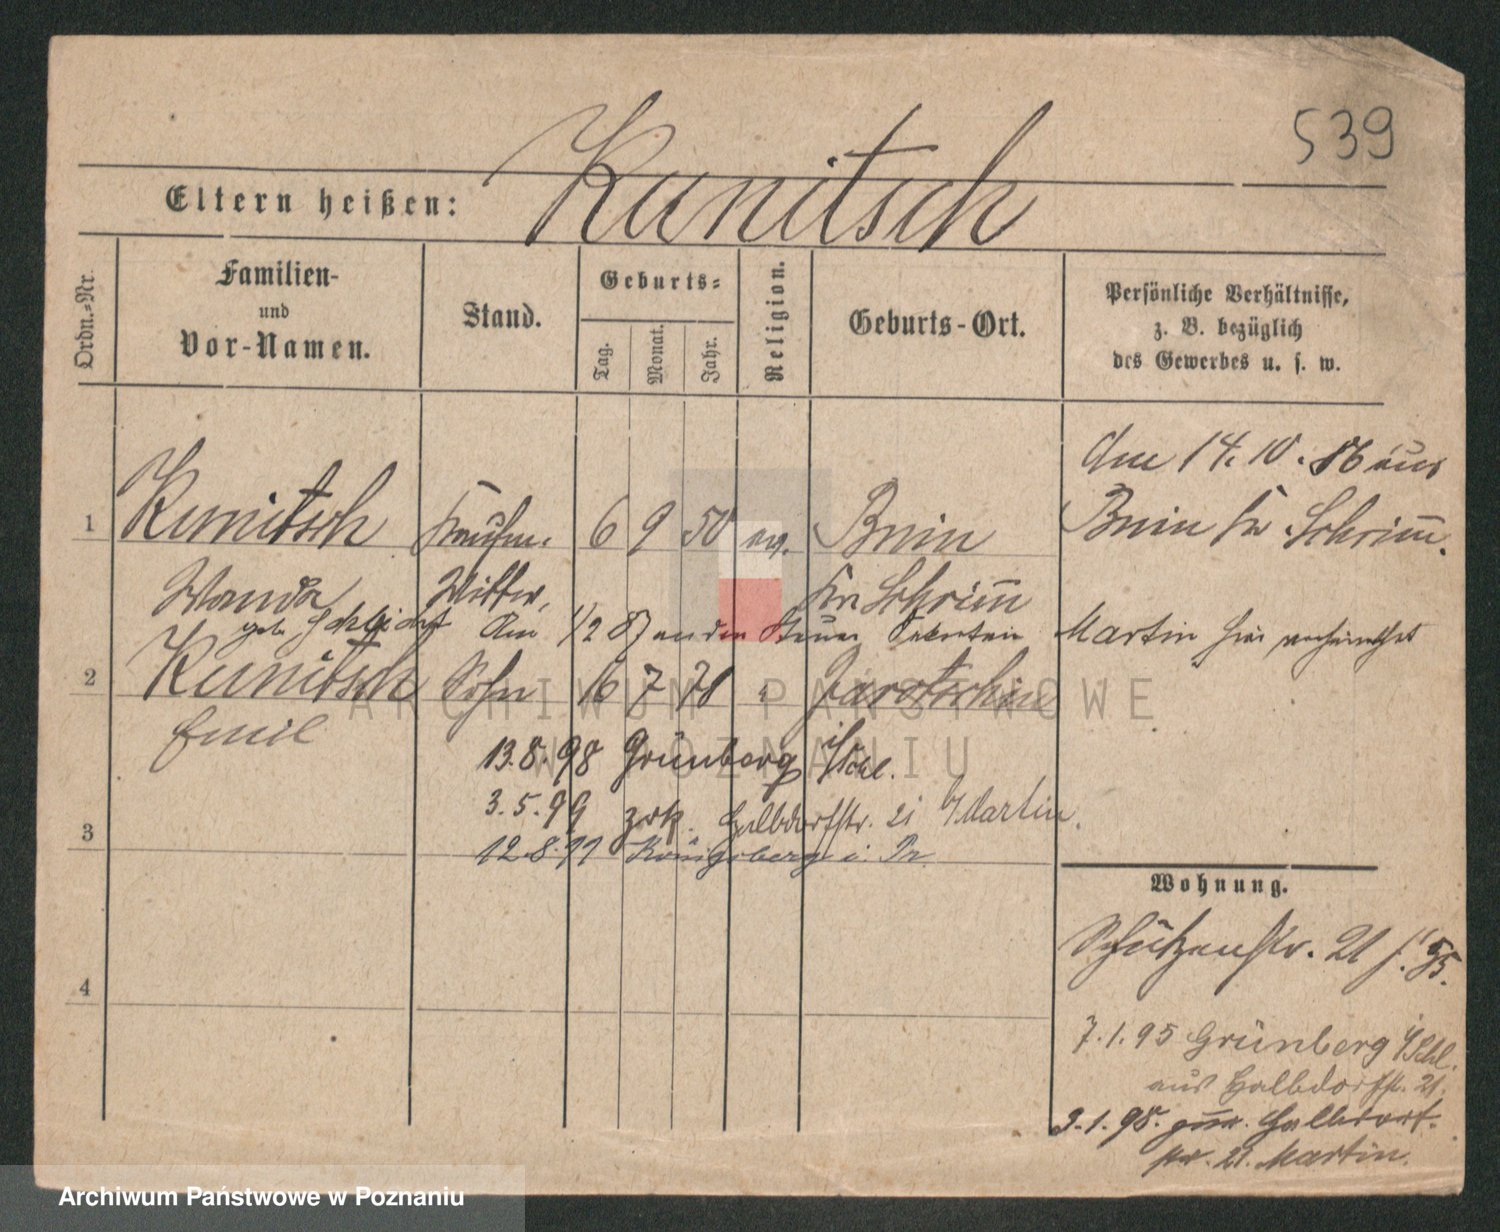 539
Kunitsch
Eltern heißen:
Ordn.-Nr.
Familien-
und
Vor-Namen.
Stand.
Geburts-
Tag.
Monat.
Jahr.
Religion.
Geburts-Ort.
Persönliche Verhältnisse,
z. B. bezüglich
des Gewerbes u. s. w.
Am 14. 10. 86 aus
1 Kunitsch Kaufm. 6 9 50 ev. Bnin Bnin Kr Schrimm.
Wanda Wittw. Kr Schrimm
geb. Am 1/2 87 an den Steuer Martin hier verheirathet
2 Kunitsch Sohn 16 7 78 " Jarotschin
Emil
13.8.98 Grünberg i/Schl.
3.5.99 zrk. Halbdorfstr. 21 b/Martin.
3
12.8.99 Königsberg i. Pr.
Wohnung.
Schützenstr. 21
4
7.1.95 Grünberg i/Schl.
aus Halbdorfstr. 21.
3.1.98. Halbdorf-
str. 21. Martin.
ARCHIWUM PAŃSTWOWE
W POZNANIU
Archiwum Państwowe w Poznaniu